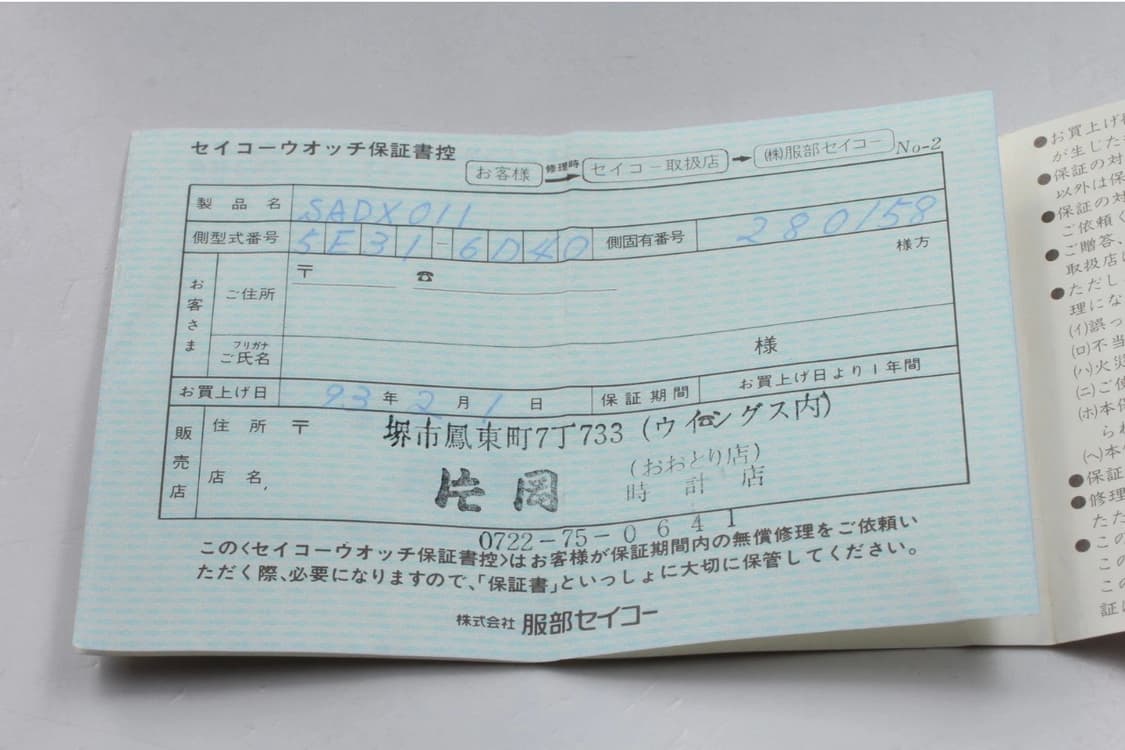 セイコーウオッチ保証書控
お客様 修理時 → セイコー取扱店 → ㈱服部セイコー No-2
製品名 SADX011
側型式番号 5E31-6D40 側固有番号 280158
お客さま ご住所 〒 ☎ 様方
フリガナ
ご氏名 様
お買上げ日 93年 2月 1日 保証期間 お買上げ日より1年間
販売店 住所 〒 堺市鳳東町7丁733(ウイングス内)
☎
(おおとり店)
店名 片岡 時計店
0722-75-0641
この<セイコーウオッチ保証書控>はお客様が保証期間内の無償修理をご依頼い
ただく際、必要になりますので、「保証書」といっしょに大切に保管してください。
株式会社 服部セイコー
●お買上げ
が生じた
●保証の対
以外は保
●保証の対
ご依頼く
●ご贈答、
取扱店
●ただし
理にな
(イ)誤っ
(ロ)不当
(ハ)火災
(ニ)ご使
(ホ)本保
られ
(ヘ)本
●保証
●修理
ただ
●この
この
この
証